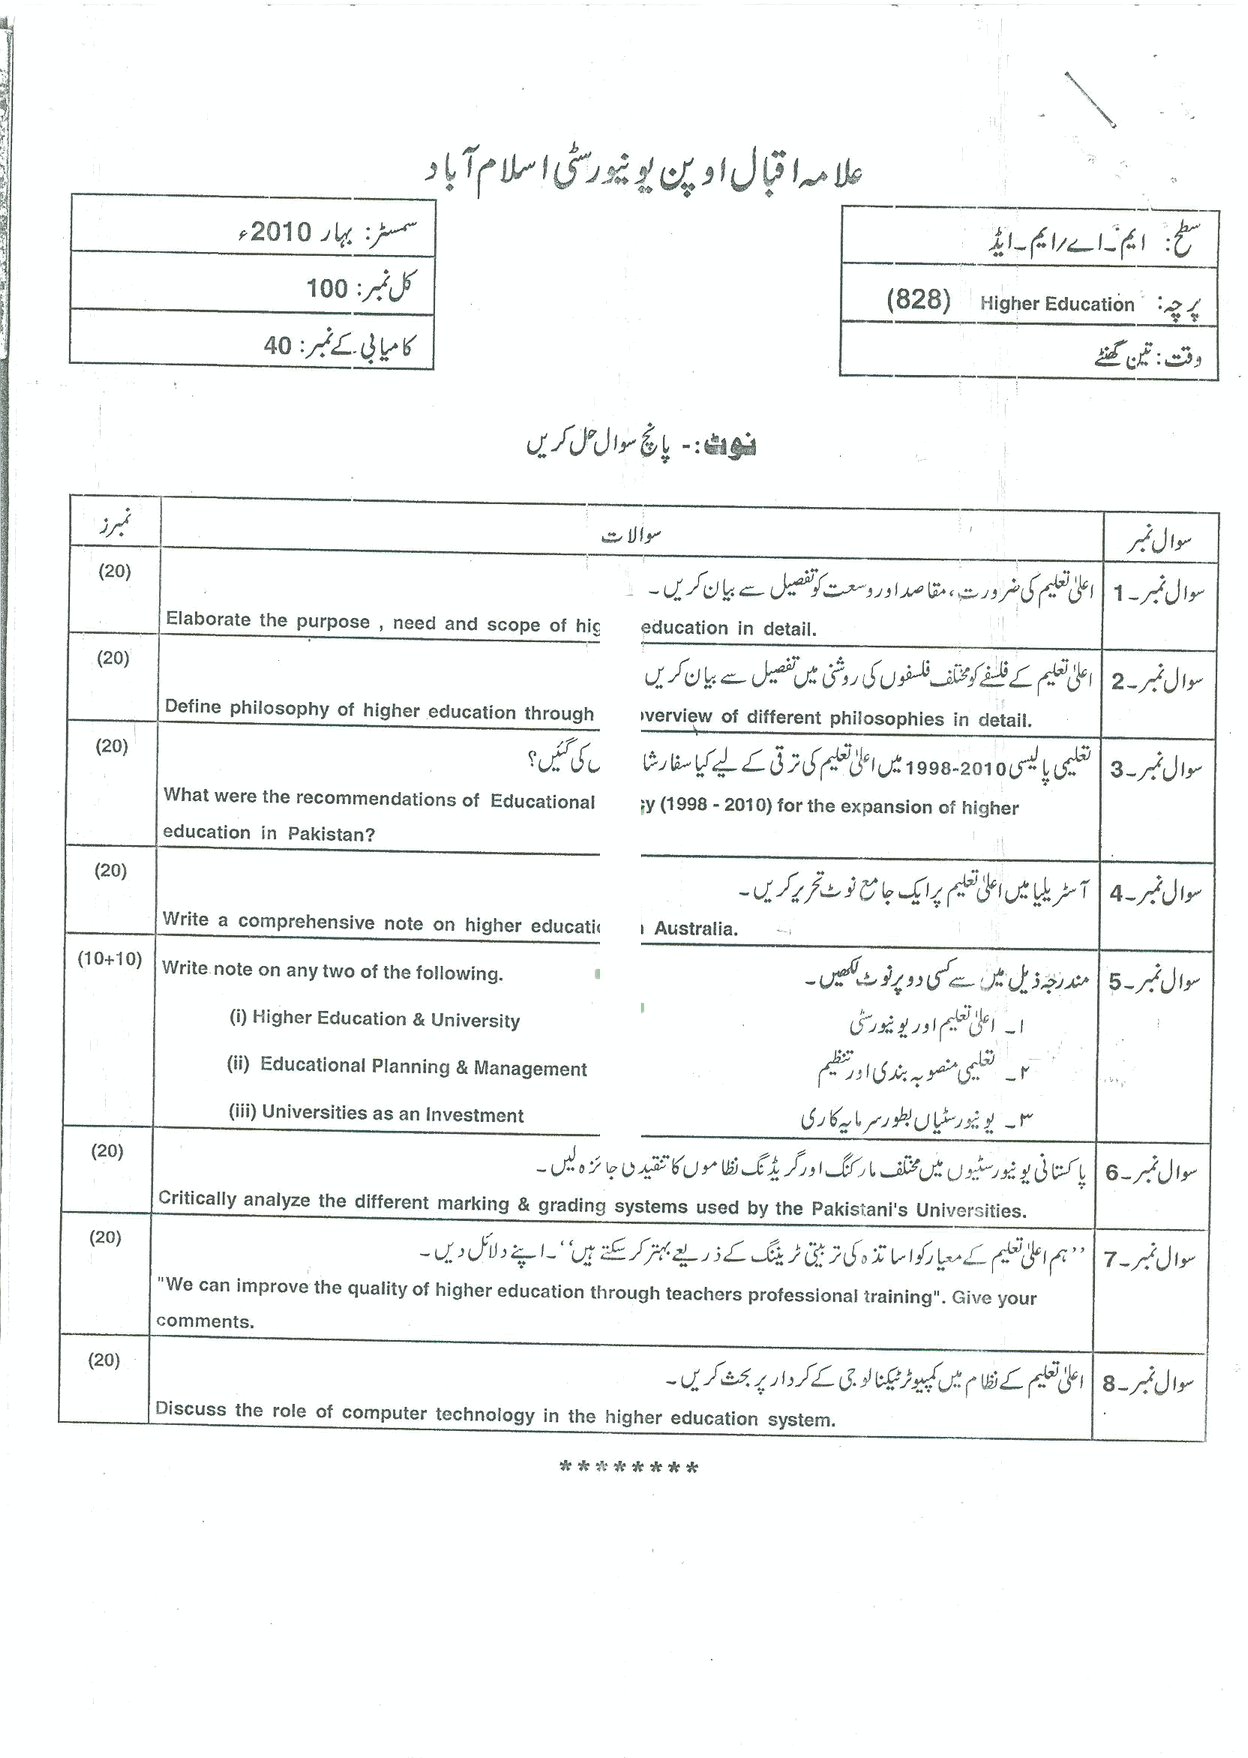 علامہ اقبال اوپن یونیورسٹی اسلام آباد
سطح: ایم۔اے/ایم۔ایڈ
پرچہ: Higher Education (828)
وقت: تین گھنٹے
سمسٹر: بہار 2010ء
کل نمبر: 100
کامیابی کے نمبر: 40
نوٹ:- پانچ سوال حل کریں
سوال نمبر سوالات نمبرز
سوال نمبر۔1 اعلیٰ تعلیم کی ضرورت، مقاصد اور وسعت کو تفصیل سے بیان کریں۔ (20)
Elaborate the purpose , need and scope of hig education in detail.
سوال نمبر۔2 اعلیٰ تعلیم کے فلسفے کو مختلف فلسفوں کی روشنی میں تفصیل سے بیان کریں (20)
Define philosophy of higher education through verview of different philosophies in detail.
سوال نمبر۔3 تعلیمی پالیسی 1998-2010 میں اعلیٰ تعلیم کی ترقی کے لیے کیا سفارشا کی گئیں؟ (20)
What were the recommendations of Educational y (1998 - 2010) for the expansion of higher
education in Pakistan?
سوال نمبر۔4 آسٹریلیا میں اعلیٰ تعلیم پر ایک جامع نوٹ تحریر کریں۔ (20)
Write a comprehensive note on higher educati Australia.
سوال نمبر۔5 مندرجہ ذیل میں سے کسی دو پر نوٹ لکھیں۔ Write note on any two of the following. (10+10)
۱۔ اعلیٰ تعلیم اور یونیورسٹی (i) Higher Education & University
۲۔ تعلیمی منصوبہ بندی اور تنظیم (ii) Educational Planning & Management
۳۔ یونیورسٹیاں بطور سرمایہ کاری (iii) Universities as an Investment
سوال نمبر۔6 پاکستانی یونیورسٹیوں میں مختلف مارکنگ اور گریڈنگ نظاموں کا تنقیدی جائزہ لیں۔ (20)
Critically analyze the different marking & grading systems used by the Pakistani's Universities.
سوال نمبر۔7 ’’ہم اعلیٰ تعلیم کے معیار کو اساتذہ کی تربیتی ٹریننگ کے ذریعے بہتر کر سکتے ہیں‘‘۔ اپنے دلائل دیں۔ (20)
"We can improve the quality of higher education through teachers professional training". Give your
comments.
سوال نمبر۔8 اعلیٰ تعلیم کے نظام میں کمپیوٹر ٹیکنالوجی کے کردار پر بحث کریں۔ (20)
Discuss the role of computer technology in the higher education system.
********